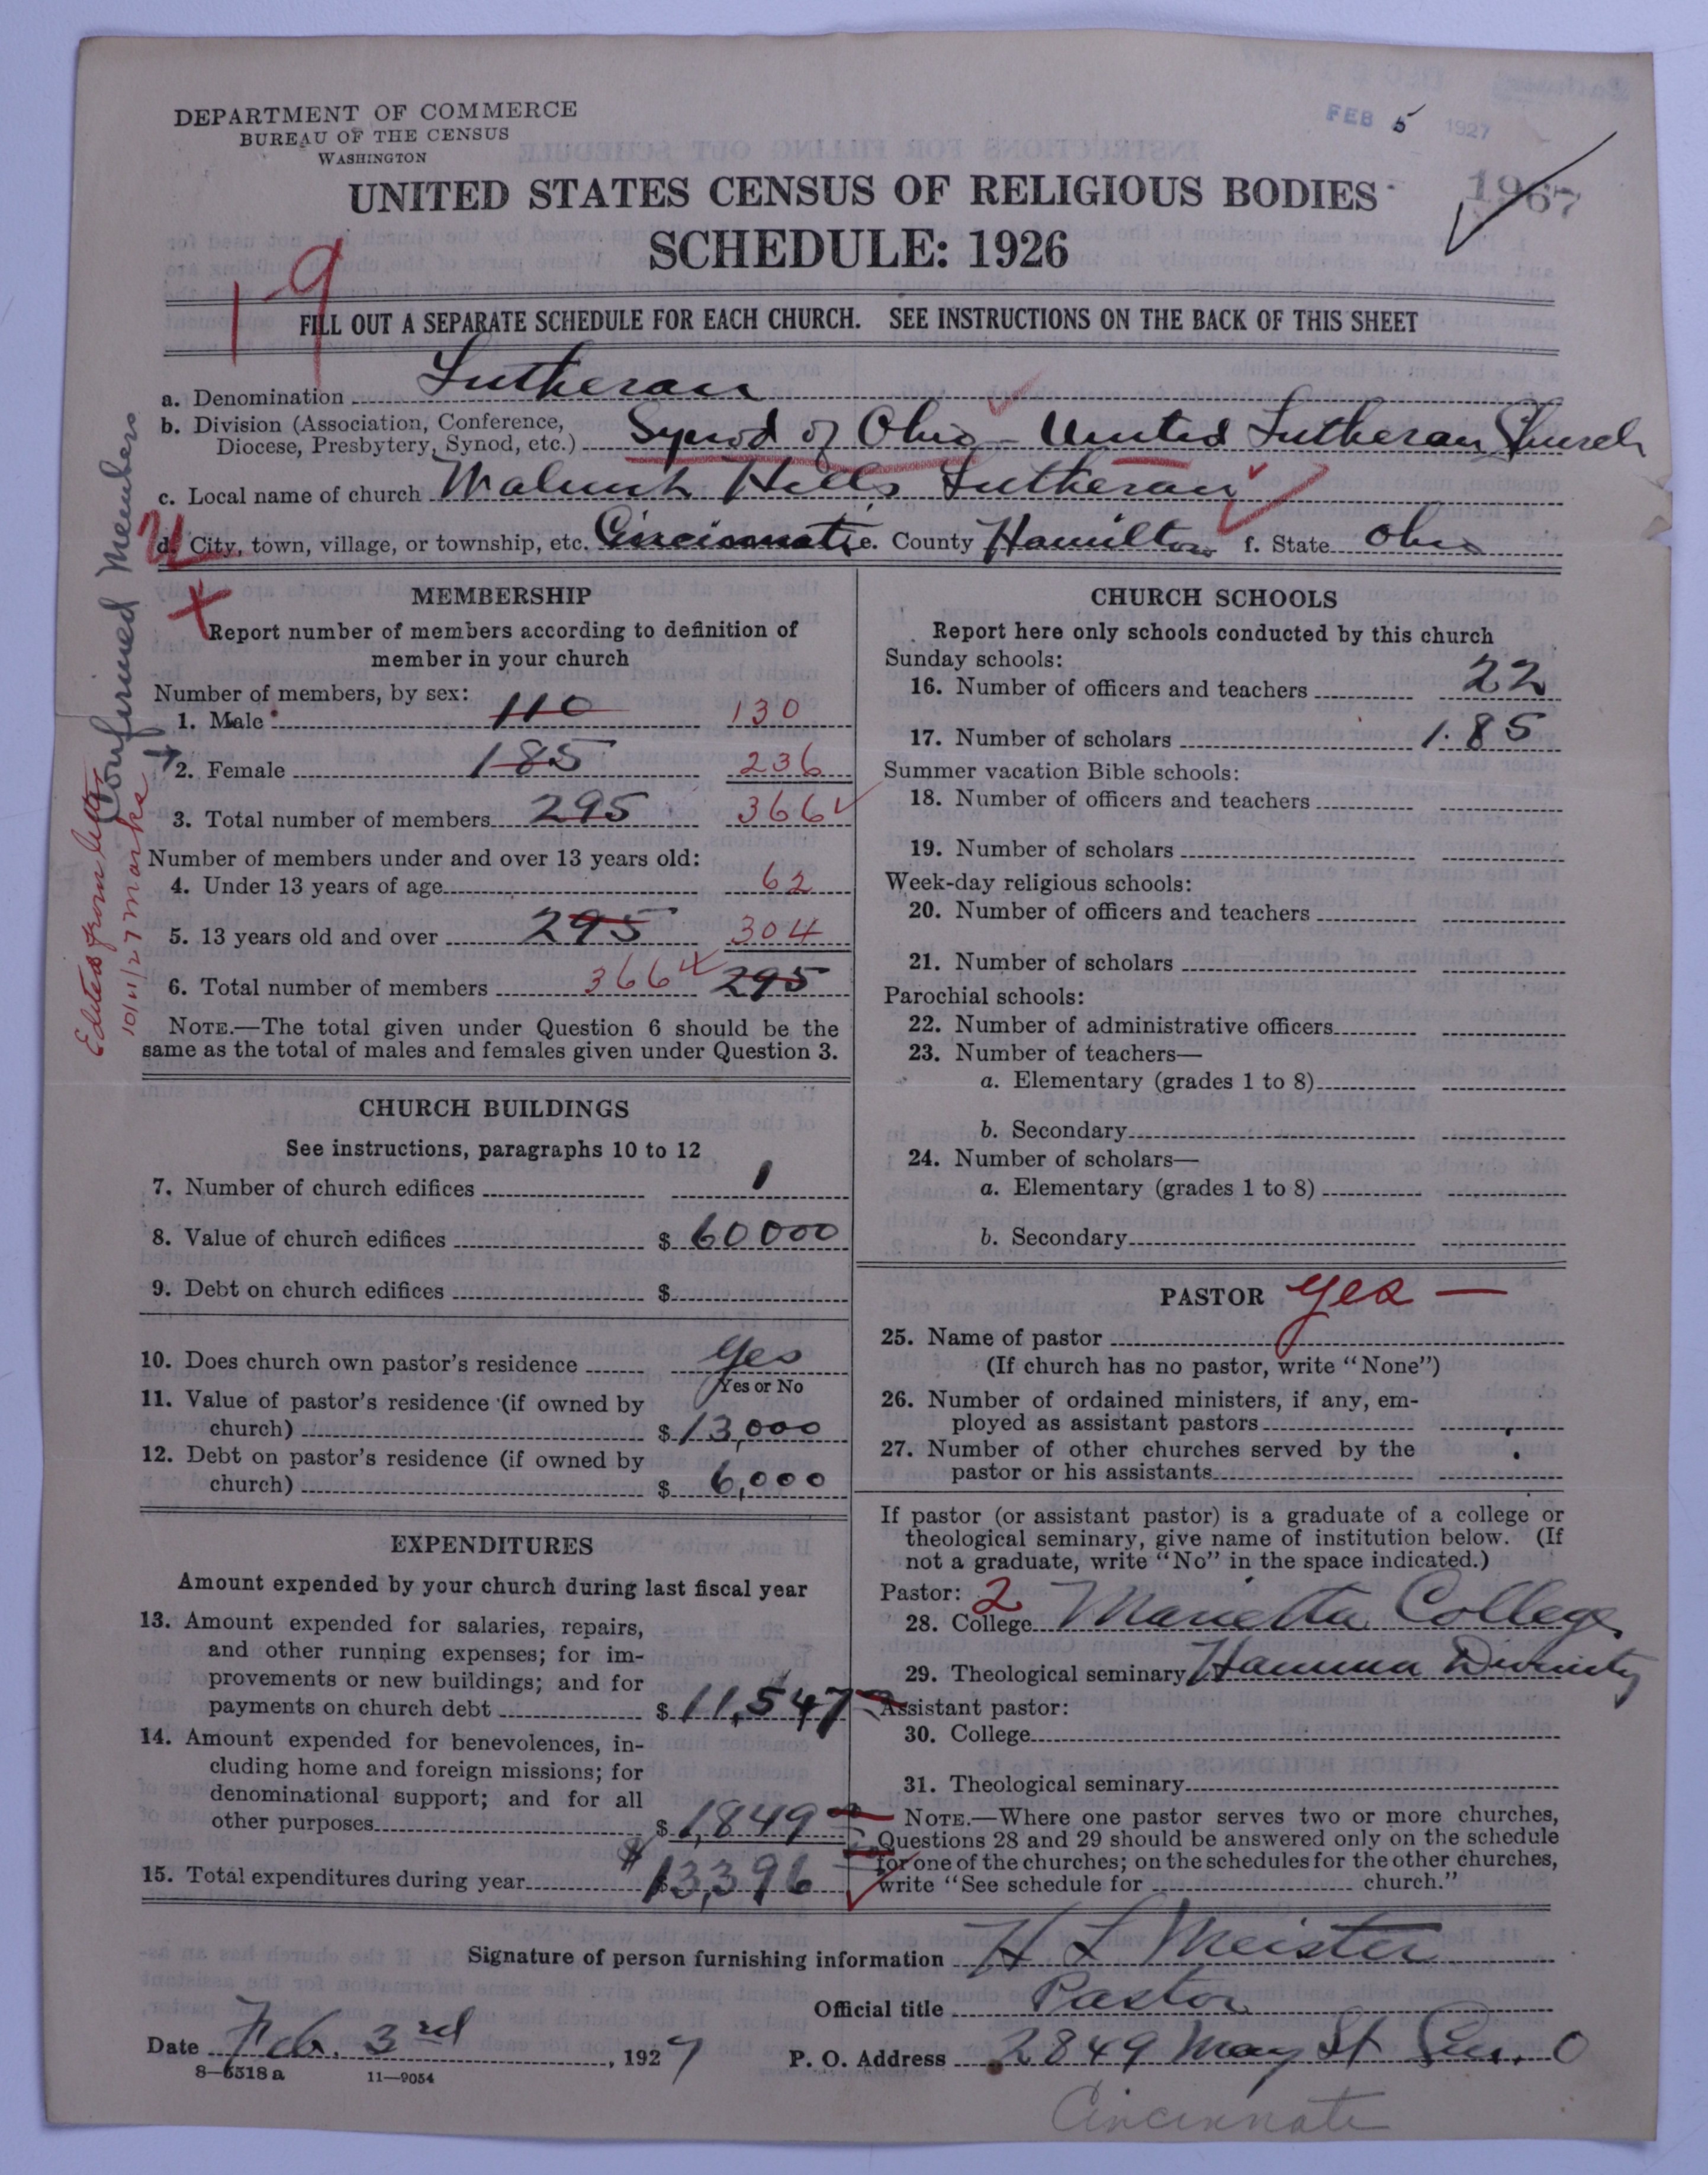 DEPARTMENT OF COMMERCE
BUREAU OF THE CENSUS
WASHINGTON
FEB 5 1927
1967
UNITED STATES CENSUS OF RELIGIOUS BODIES
SCHEDULE: 1926
1-9
FILL OUT A SEPARATE SCHEDULE FOR EACH CHURCH. SEE INSTRUCTIONS ON THE BACK OF THIS SHEET
a. Denomination Lutheran
b. Division (Association, Conference, Diocese, Presbytery, Synod, etc.) Synod of Ohio - United Lutheran Church
c. Local name of church Walnut Hills Lutheran
d. City, town, village, or township, etc. Cincinnati e. County Hamilton f. State Ohio
Confirmed Members
Edited from letter
10/11/27 Marks
MEMBERSHIP
Report number of members according to definition of
member in your church
Number of members, by sex:
1. Male 110 130
2. Female 185 236
3. Total number of members 295 366
Number of members under and over 13 years old:
4. Under 13 years of age 62
5. 13 years old and over 295 304
6. Total number of members 366 295
NOTE.—The total given under Question 6 should be the
same as the total of males and females given under Question 3.
CHURCH BUILDINGS
See instructions, paragraphs 10 to 12
7. Number of church edifices 1
8. Value of church edifices $ 60000
9. Debt on church edifices $
10. Does church own pastor's residence Yes
Yes or No
11. Value of pastor's residence (if owned by
church) $ 13,000
12. Debt on pastor's residence (if owned by
church) $ 6,000
EXPENDITURES
Amount expended by your church during last fiscal year
13. Amount expended for salaries, repairs,
and other running expenses; for im-
provements or new buildings; and for
payments on church debt $ 11,547
14. Amount expended for benevolences, in-
cluding home and foreign missions; for
denominational support; and for all
other purposes $ 1,849
15. Total expenditures during year $ 13,396
CHURCH SCHOOLS
Report here only schools conducted by this church
Sunday schools:
16. Number of officers and teachers 22
17. Number of scholars 185
Summer vacation Bible schools:
18. Number of officers and teachers
19. Number of scholars
Week-day religious schools:
20. Number of officers and teachers
21. Number of scholars
Parochial schools:
22. Number of administrative officers
23. Number of teachers—
a. Elementary (grades 1 to 8)
b. Secondary
24. Number of scholars—
a. Elementary (grades 1 to 8)
b. Secondary
PASTOR yes —
25. Name of pastor
(If church has no pastor, write "None")
26. Number of ordained ministers, if any, em-
ployed as assistant pastors
27. Number of other churches served by the
pastor or his assistants
If pastor (or assistant pastor) is a graduate of a college or
theological seminary, give name of institution below. (If
not a graduate, write "No" in the space indicated.)
Pastor: 2
28. College Marietta College
29. Theological seminary Hamma Divinity
Assistant pastor:
30. College
31. Theological seminary
NOTE.—Where one pastor serves two or more churches,
Questions 28 and 29 should be answered only on the schedule
for one of the churches; on the schedules for the other churches,
write "See schedule for church."
Signature of person furnishing information H L Meister
Official title Pastor
Date Feb. 3rd, 1927 P. O. Address 2849 May St Cin. O
8—6518a 11—9054
Cincinnati